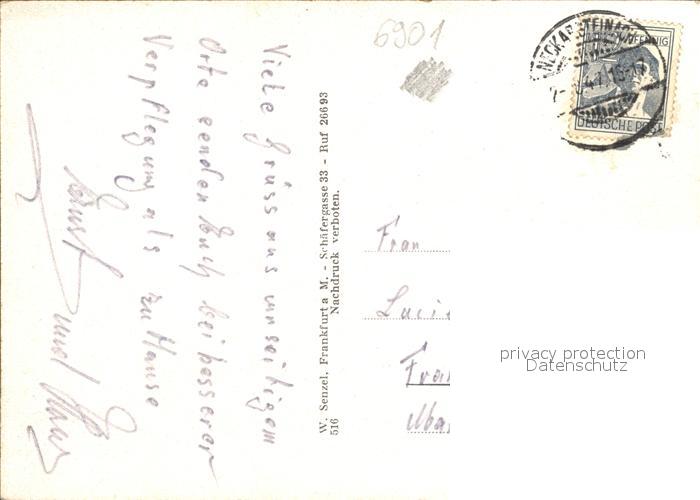 6901
NECKARSTEINACH
PFENNIG
DEUTSCHE POST
Viele Grüss aus unseitigem
Orte senden Euch bei besserer
Verpflegung als zuHause
Ernst und
W. Senzel, Frankfurt a M. - Schäfergasse 33 - Ruf 26693
516 Nachdruck verboten.
Frau
Luci
Fra
privacy protection
Datenschutz